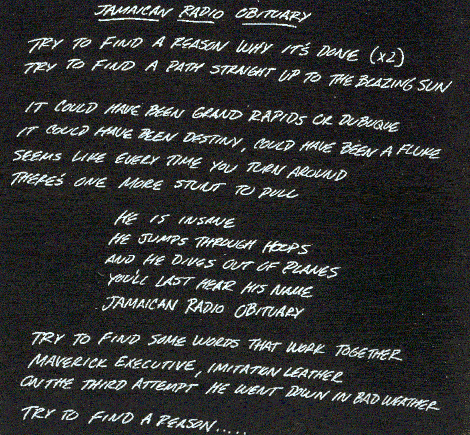 JAMAICAN RADIO OBITUARY
TRY TO FIND A REASON WHY IT'S DONE (x2)
TRY TO FIND A PATH STRAIGHT UP TO THE BLAZING SUN
IT COULD HAVE BEEN GRAND RAPIDS OR DUBUQUE
IT COULD HAVE BEEN DESTINY, COULD HAVE BEEN A FLUKE
SEEMS LIKE EVERY TIME YOU TURN AROUND
THERE'S ONE MORE STUNT TO PULL
HE IS INSANE
HE JUMPS THROUGH HOOPS
AND HE DIVES OUT OF PLANES
YOU'LL LAST HEAR HIS NAME
JAMAICAN RADIO OBITUARY
TRY TO FIND SOME WORDS THAT WORK TOGETHER
MAVERICK EXECUTIVE, IMITATION LEATHER
ON THE THIRD ATTEMPT HE WENT DOWN IN BAD WEATHER
TRY TO FIND A REASON.....